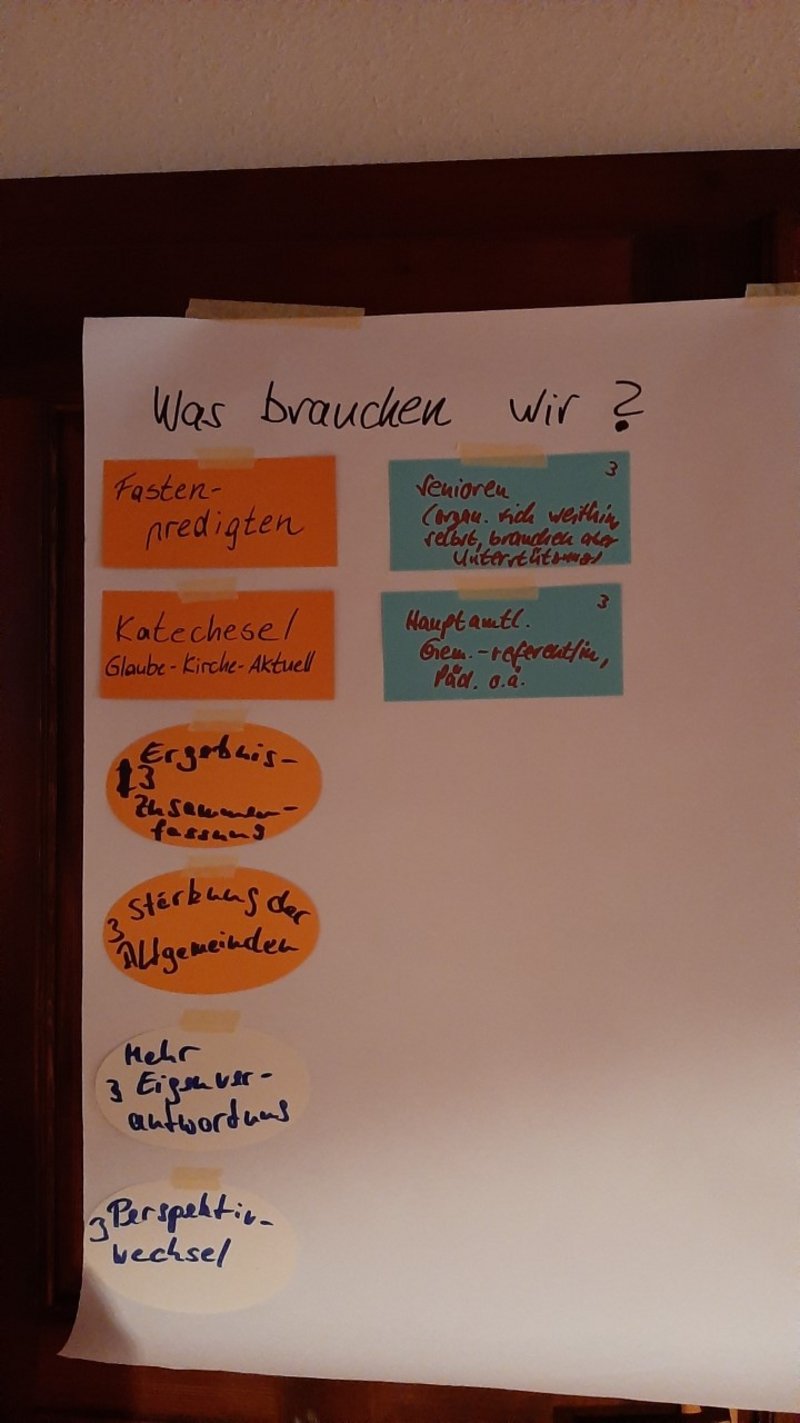 Was brauchen wir ?
Fasten-
predigten
Katechese/
Glaube-Kirche-Aktuell
Ergebnis-
3
Zusammen-
fassung
Stärkung der
3
Altgemeinden
Mehr
3 Eigenver-
antwortung
3 Perspektiv-
wechsel
3
Senioren
(organ. sich weithin
selbst, brauchen aber
Unterstützung)
3
Hauptamtl.
Gem.-referent/in,
Päd. o.ä.